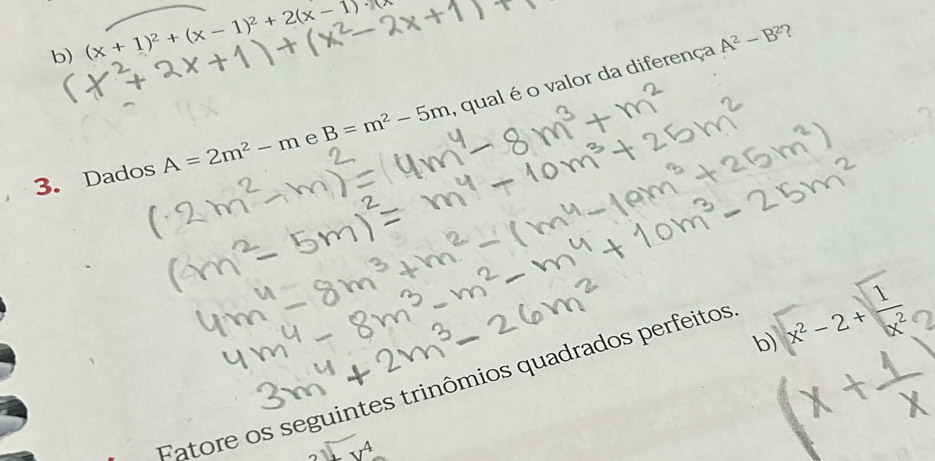 b) (x + 1)² + (x − 1)² + 2(x − 1) · (x
(x² + 2x + 1) + (x² − 2x + 1) +
4x
3. Dados A = 2m² − m e B = m² − 5m, qual é o valor da diferença A² − B²?
(2m² − m)² = (4m⁴ − 8m³ + m²
(m² − 5m)² = m⁴ − 10m³ + 25m²
4m⁴ − 8m³ + m² − (m⁴ − 10m³ + 25m²)
4m⁴ − 8m³ − m² − m⁴ + 10m³ − 25m²
3m⁴ + 2m³ − 26m²
Fatore os seguintes trinômios quadrados perfeitos.
b) √x² − 2 + √1/x²
(x + 1/x)²
y⁴